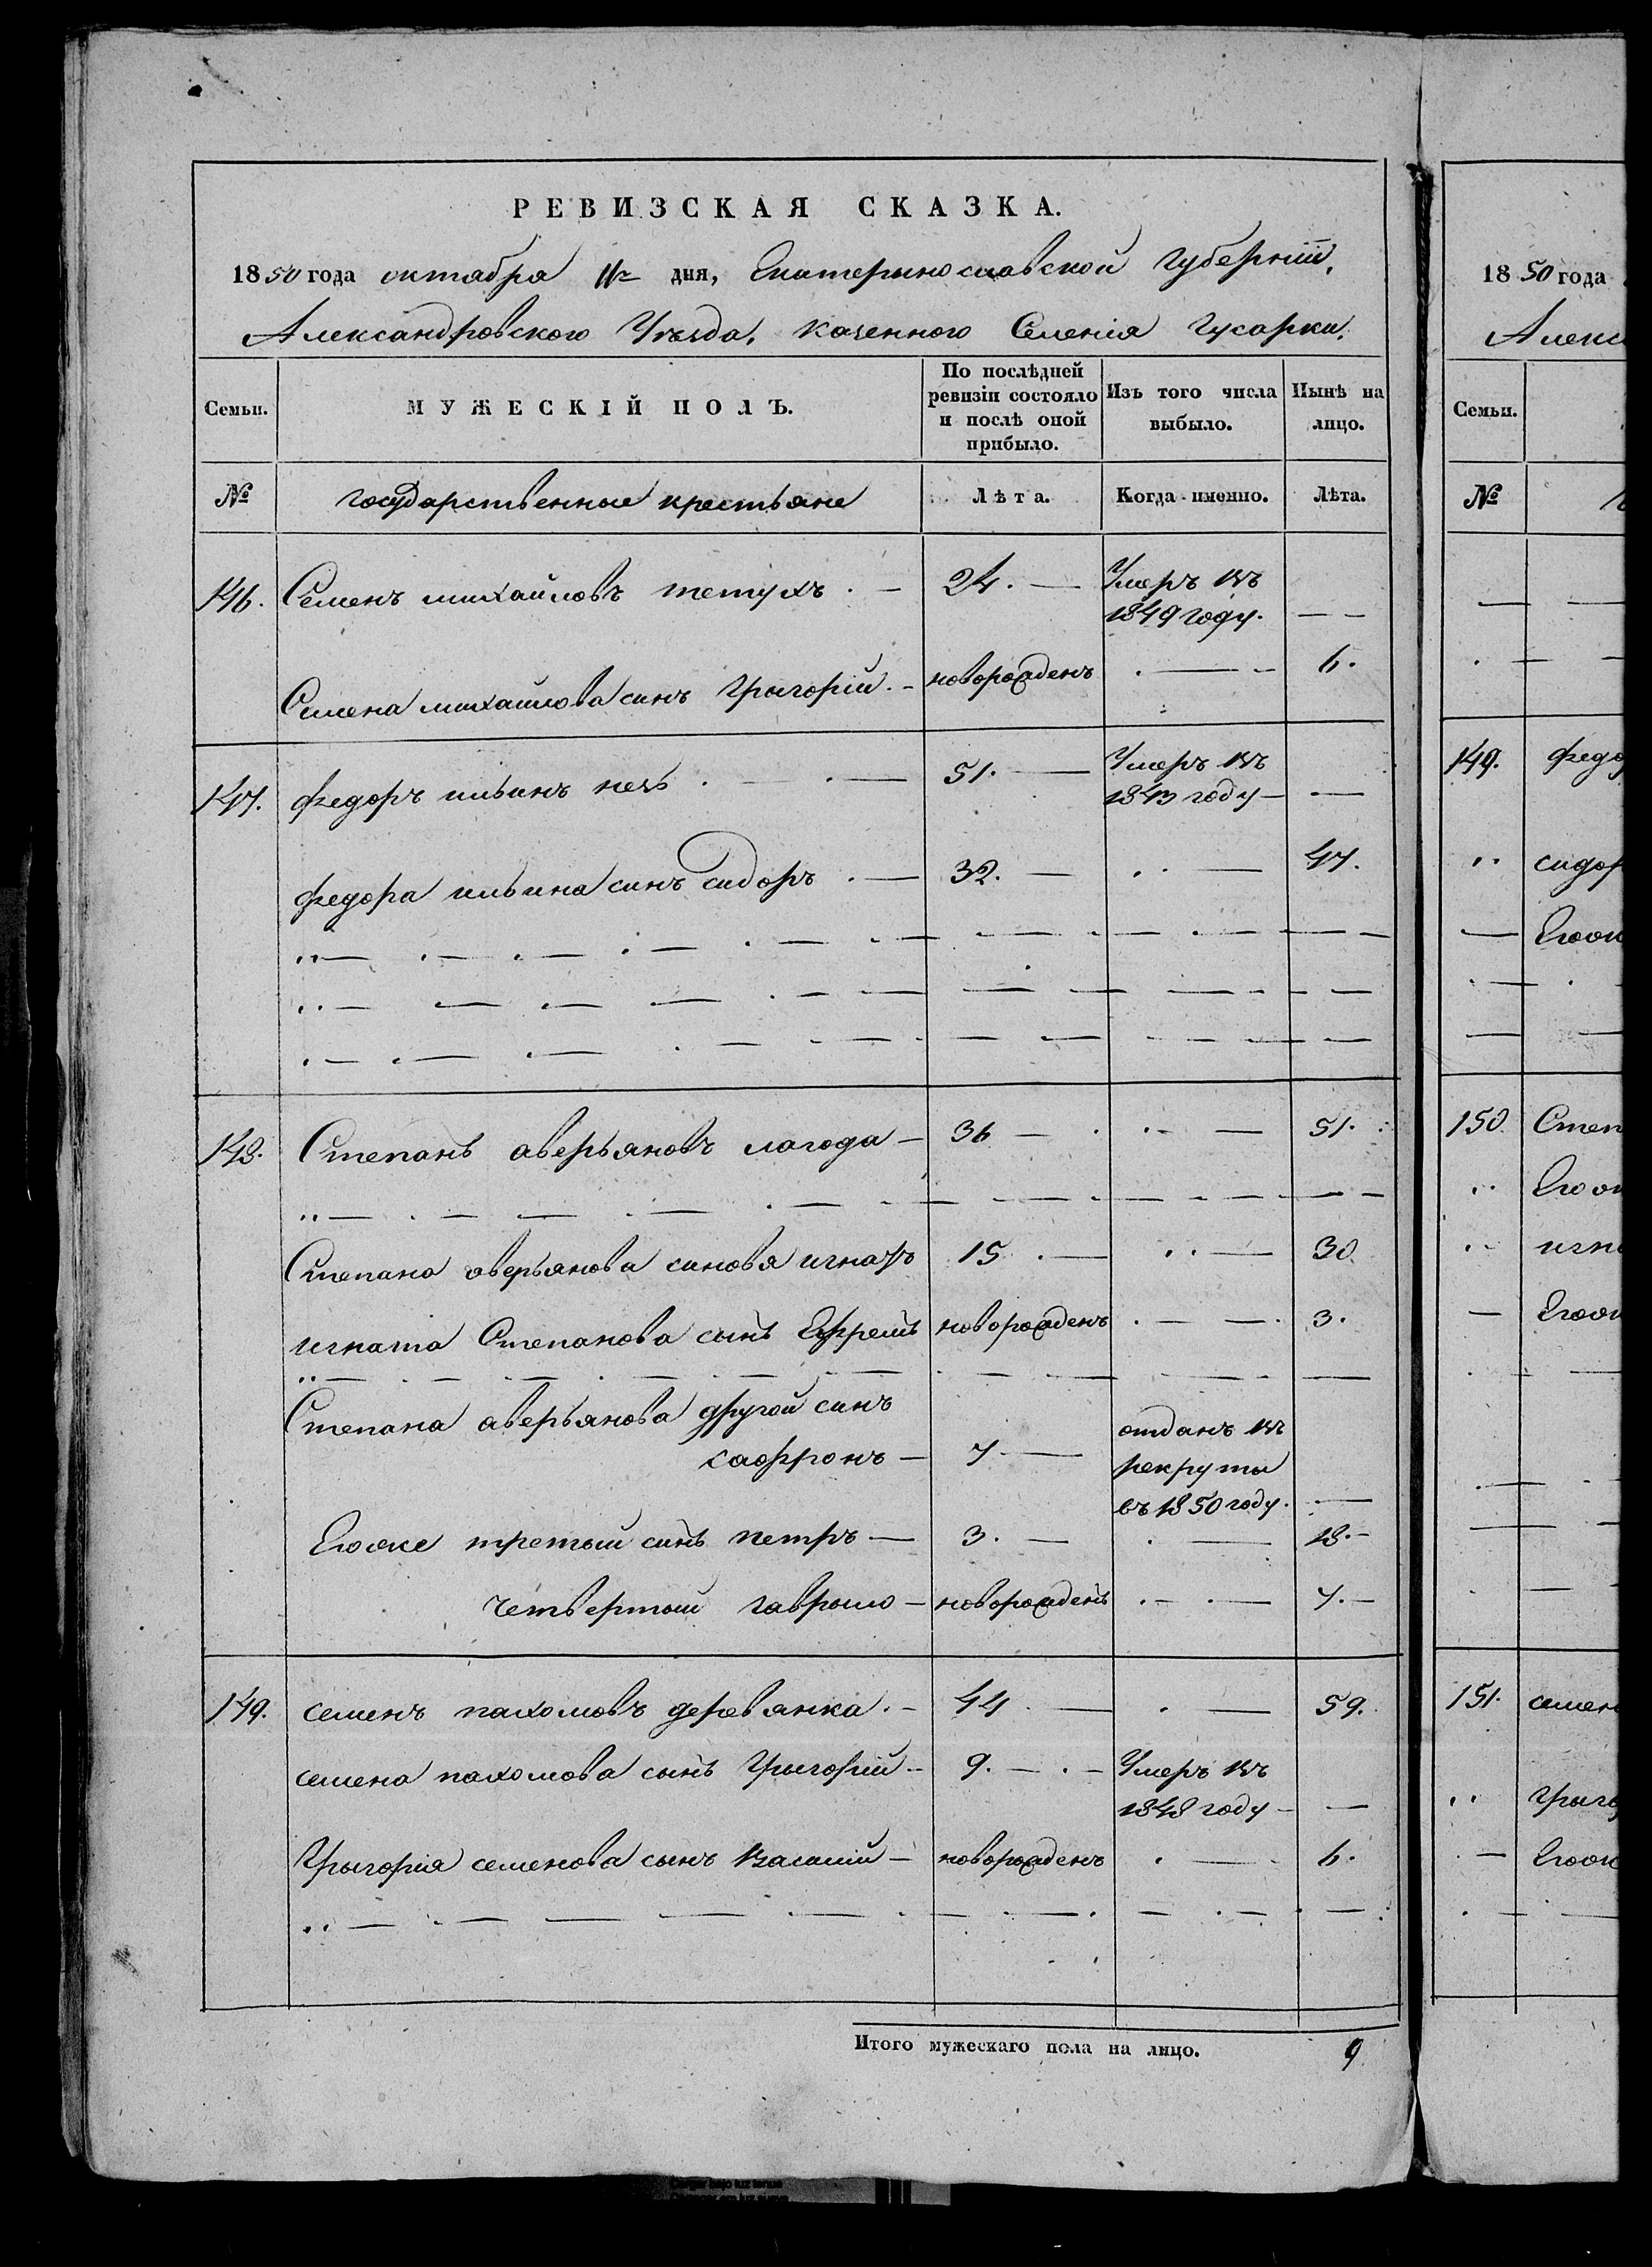 РЕВИЗСКАЯ СКАЗКА.
1850 года октабра 11го дня, Екатериносławской Губерніи,
Александровского Уѣзда, казенного Селенія Гусарки.
Семьи. МУЖЕСКІЙ ПОЛЪ. По послѣдней ревизіи состояло и послѣ оной прибыло. Изъ того числа выбыло. Нынѣ на лицо.
№ государственные крестьяне Лѣта. Когда именно. Лѣта.
146. Семенъ михайловъ петухъ. — 24. — Умеръ въ
1849 году. — —
Семена михайлова синъ Григорій. — новорожденъ . — - 6.
147. федоръ ильинъ . — . — 51. — Умеръ въ
1843 году — —
федора ильина синъ сидоръ . — 32. — . . — 47.
148. Степанъ аверьяновъ лагода — 36 — . . - — 51.
Степана аверьянова синовя игнатъ 15 . — . . — 30
игната Степанова сынъ Ефремъ новорожденъ . — — . 3.
Степана аверьянова другой синъ
сафронъ — 7 — отданъ въ
рекруты
въ 1850 году. —
Егоже третый синъ петръ — 3. — . — 18. -
четвертый гаврыло — новорожденъ . - . — 7. -
149. семенъ пахомовъ деревянка. - 44 . — . — 59.
семена пахомова сынъ Григорій - 9. — . — Умеръ въ
1848 году — —
Григорія семенова сынъ Василій — новорожденъ . — . 6.
Итого мужескаго пола на лицо. 9
1850 года
Алекс
Семьи.
№
149. федо
сидор
Егож
150 Степ
Егож
игна
Егож
151. семен
Григо
Егож